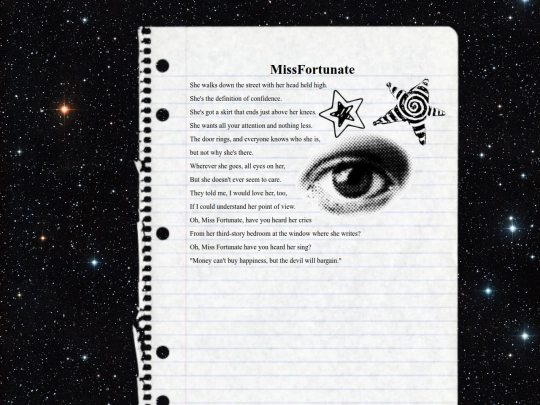 MissFortunate
She walks down the street with her head held high.
She's the definition of confidence.
She's got a skirt that ends just above her knees.
She wants all your attention and nothing less.
The door rings, and everyone knows who she is,
but not why she's there.
Wherever she goes, all eyes on her,
But she doesn't ever seem to care.
They told me, I would love her, too,
If I could understand her point of view.
Oh, Miss Fortunate, have you heard her cries
From her third-story bedroom at the window where she writes?
Oh, Miss Fortunate have you heard her sing?
"Money can't buy happiness, but the devil will bargain."